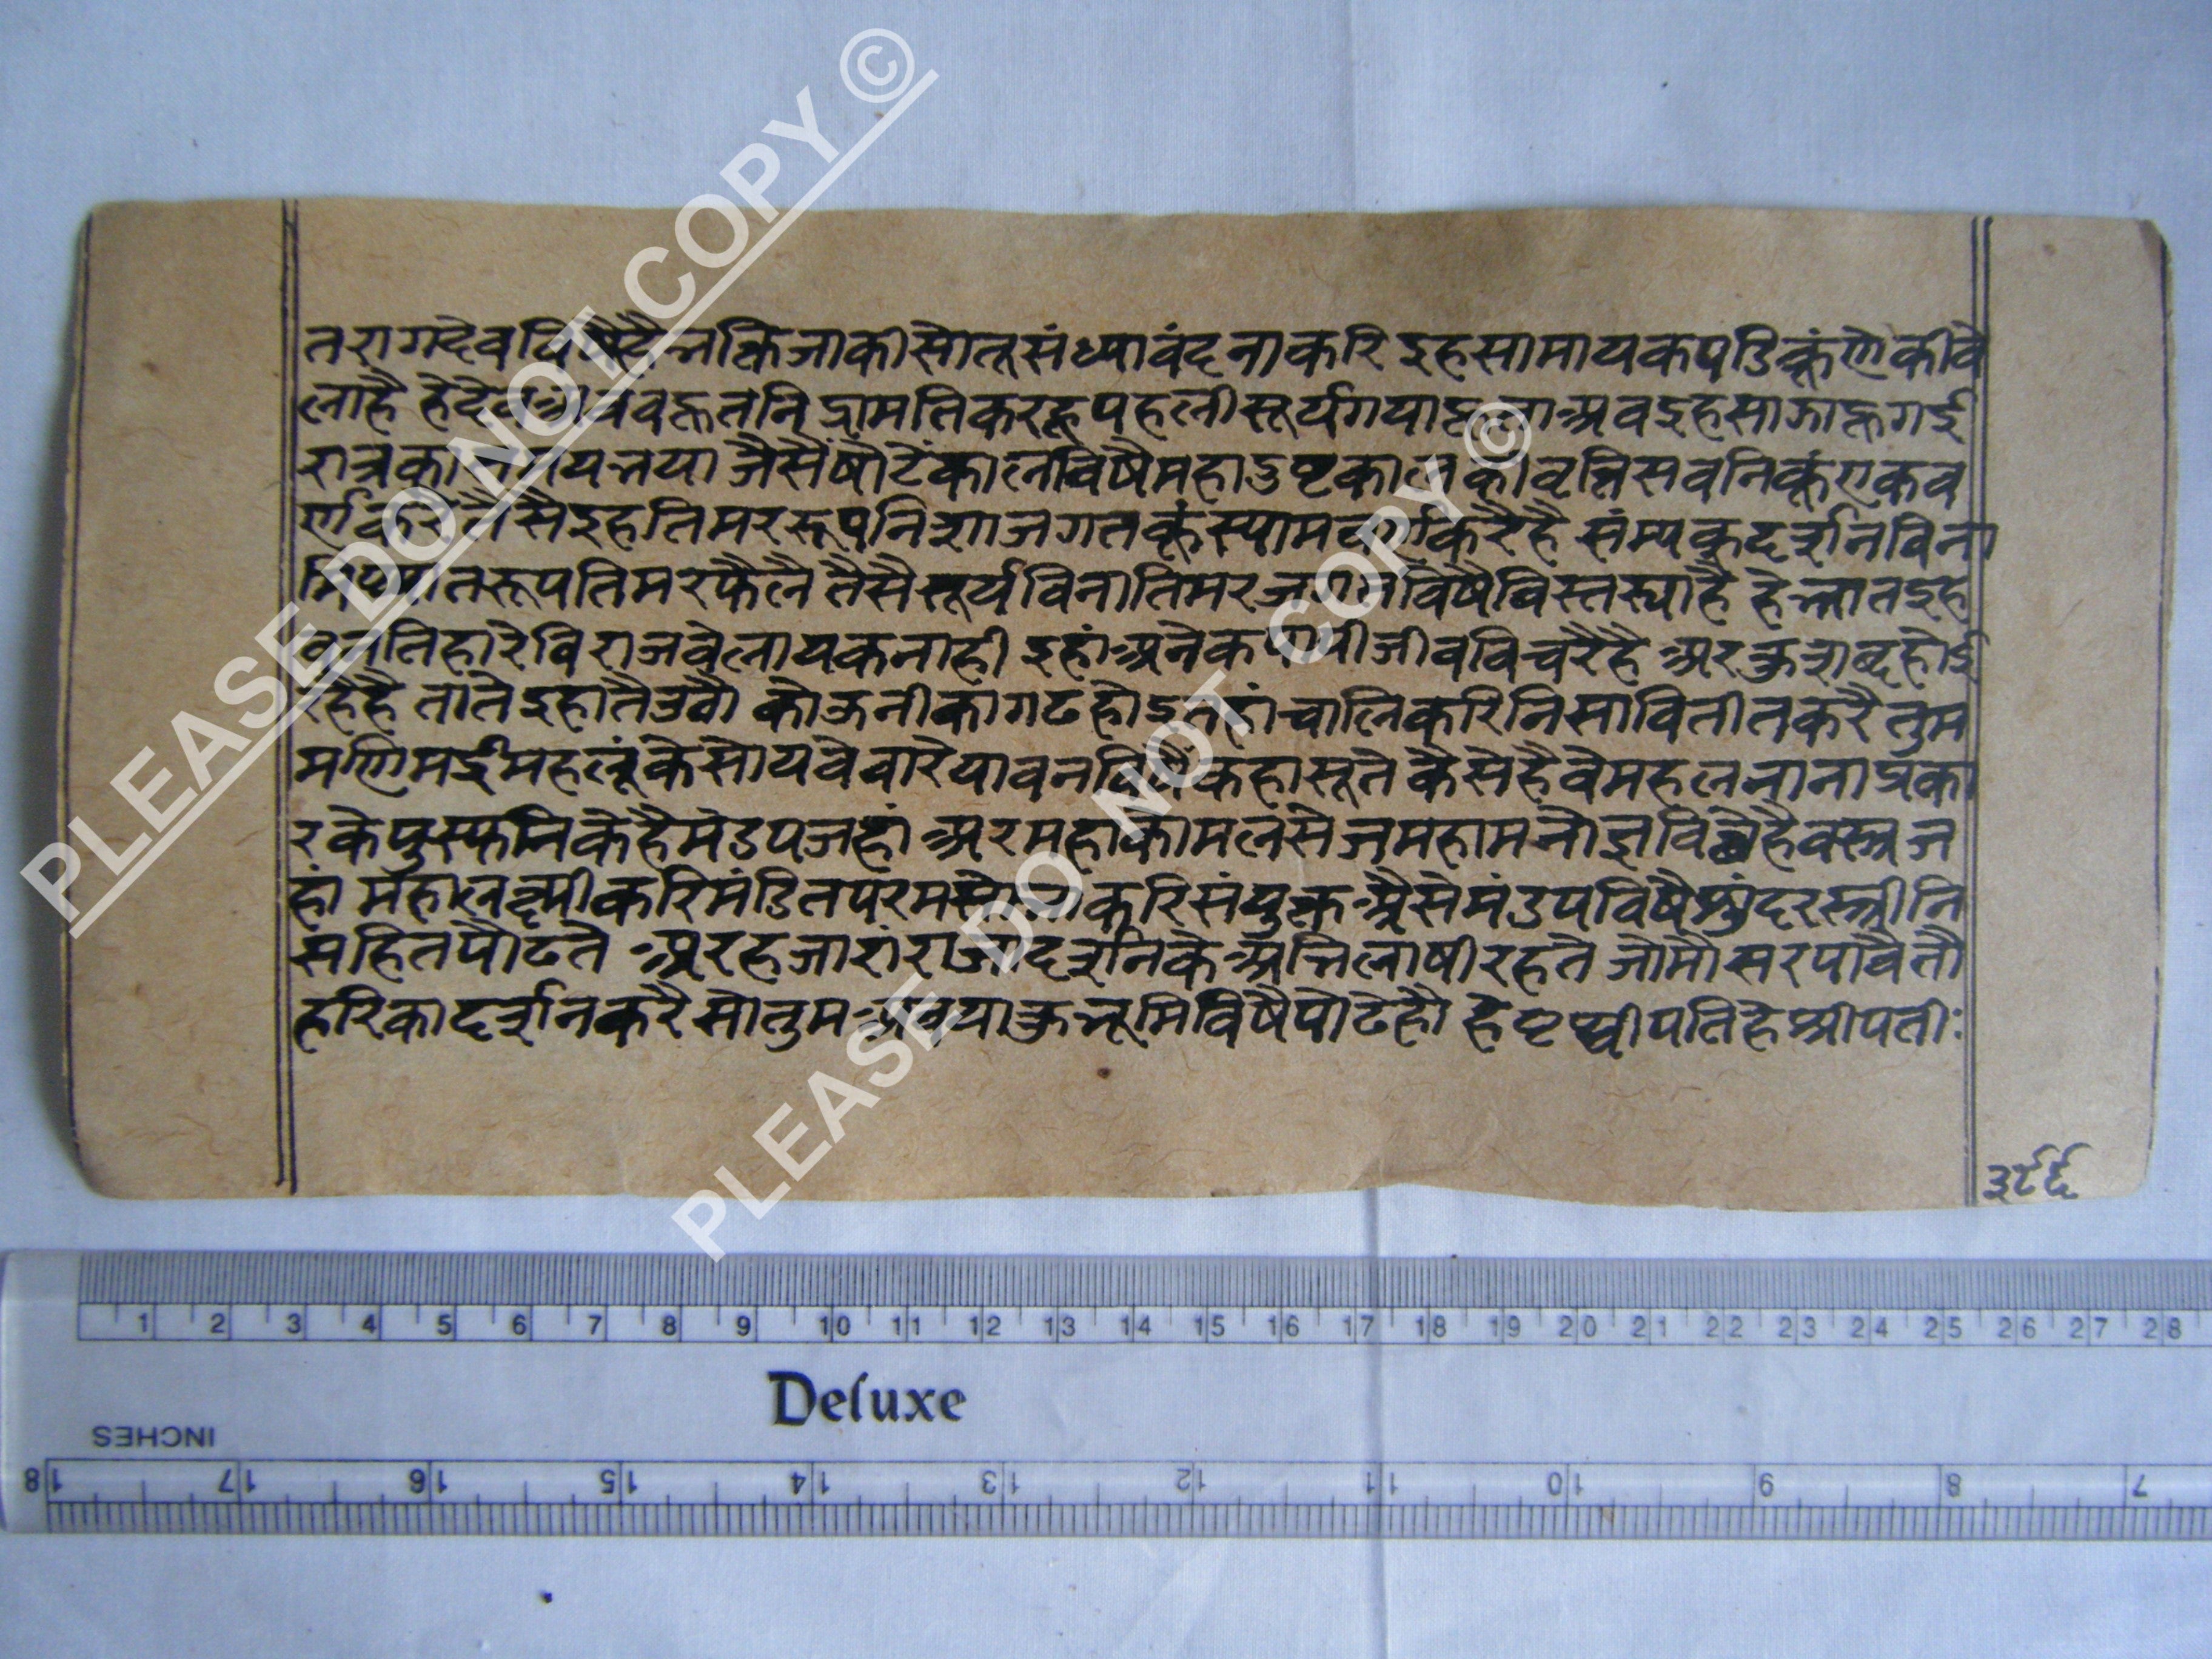 तरागदेव विषै है भक्ति जाकी सो तू संध्या वंदना करि इह सामायक पडिक्कूंणे की वे
ला है हे देव अब बहुत निद्रा मति करहू पहली सूर्य गया हुता अब इह सांझ हू गई
रात्र का समय भया जैसैं षोटे काल विषै महा दुष्ट काल की वृत्ति सवनिकूं एक व
र्ण करै तैसै इह तिमर रूप निशा जगत कूं स्याम वर्ण करै है सम्यक् दर्शन विना
मिथ्यात रूप तिमर फैलै तैसै सूर्य विना तिमर जगत विषै विस्तस्या है हे भ्रात इह
वन तिहारे विराजवे लायक नाही इहां अनेक पापी जीव विचरै है अर क्रूर शब्द होइ
रहे है तातै इहातै उठौ कोऊ नीका गढ होइ तहां चालि करि निसा वितीत करै तुम
मणिमई महलूं के सोयवे वारे या वन विषै कहा सूते कैसे है वे महल नाना प्रका
र के पुस्फनि के है मंडप जहां अर महा कोमल सेज महा मनोज्ञ विछै है वस्त्र ज
हां महालक्ष्मी करि मंडित परम सोभा करि संयुक्त असे मंडप विषै सुंदर स्त्रीनि
सहित पौढते अर हजारां राजा दर्शन के अभिलाषी रहते जो मौसर पावै तौ
हरि का दर्शन करै सो तुम अब या क्रूर भूमि विषै पौढे हौ हे पृथ्वीपति हे श्रीपती:
३९६
PLEASE DO NOT COPY ©
PLEASE DO NOT COPY ©
1 2 3 4 5 6 7 8 9 10 11 12 13 14 15 16 17 18 19 20 21 22 23 24 25 26 27 28
Deluxe
INCHES
18 17 16 15 14 13 12 11 10 9 8 7